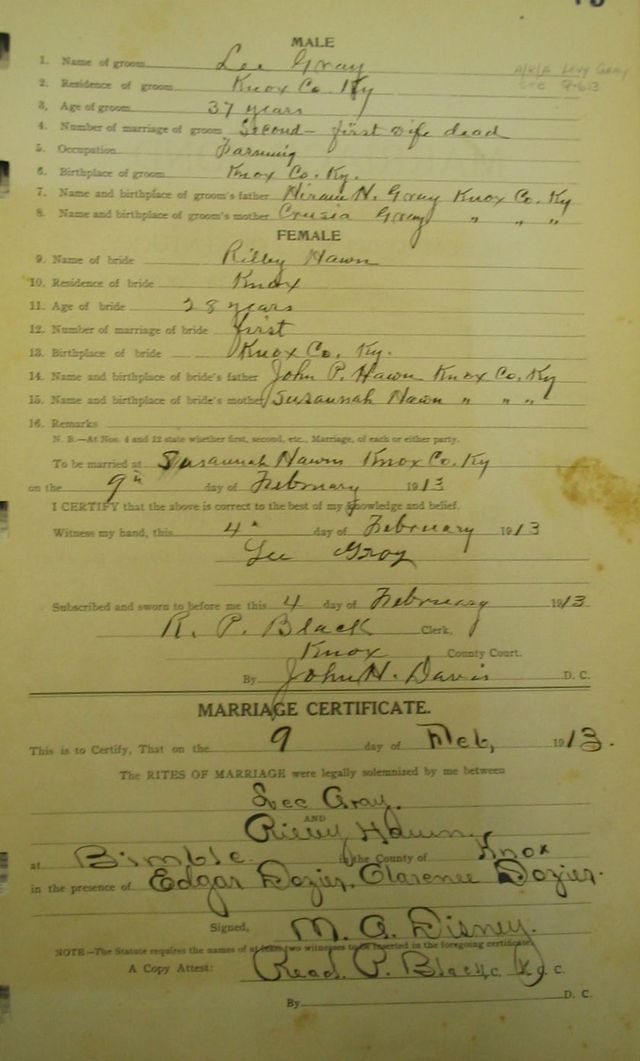 MALE
1. Name of groom Lee Gray
A/K/A Levy Gray
2. Residence of groom Knox Co. Ky
3. Age of groom 37 years
4. Number of marriage of groom Second - first wife dead
5. Occupation Farming
6. Birthplace of groom Knox Co. Ky.
7. Name and birthplace of groom's father Hiram H. Gray Knox Co. Ky
8. Name and birthplace of groom's mother Crusia Gray " " "
FEMALE
9. Name of bride Rilley Hawn
10. Residence of bride Knox
11. Age of bride 28 years
12. Number of marriage of bride first
13. Birthplace of bride Knox Co. Ky.
14. Name and birthplace of bride's father John P. Hawn Knox Co. Ky
15. Name and birthplace of bride's mother Susannah Hawn " " "
16. Remarks
N. B.—At Nos. 4 and 12 state whether first, second, etc., Marriage, of each or either party.
To be married at Susannah Hawns Knox Co. Ky
on the 9th day of February 1913
I CERTIFY that the above is correct to the best of my knowledge and belief.
Witness my hand, this 4" day of February 1913
Lee Gray
Subscribed and sworn to before me this 4 day of February 1913
R. P. Black Clerk,
Knox County Court.
By John H. Davis D. C.
MARRIAGE CERTIFICATE.
This is to Certify, That on the 9 day of Feb, 1913.
The RITES OF MARRIAGE were legally solemnized by me between
Lee Gray.
AND
Rilley Hawn
at Bimble in the County of Knox
in the presence of Edgar Dozier, Clarence Dozier.
Signed, M. A. Disney.
NOTE—The Statute requires the names of at least two witnesses to be inserted in the foregoing certificate
A Copy Attest: Read P. Black, C. K. C. C.
By D. C.